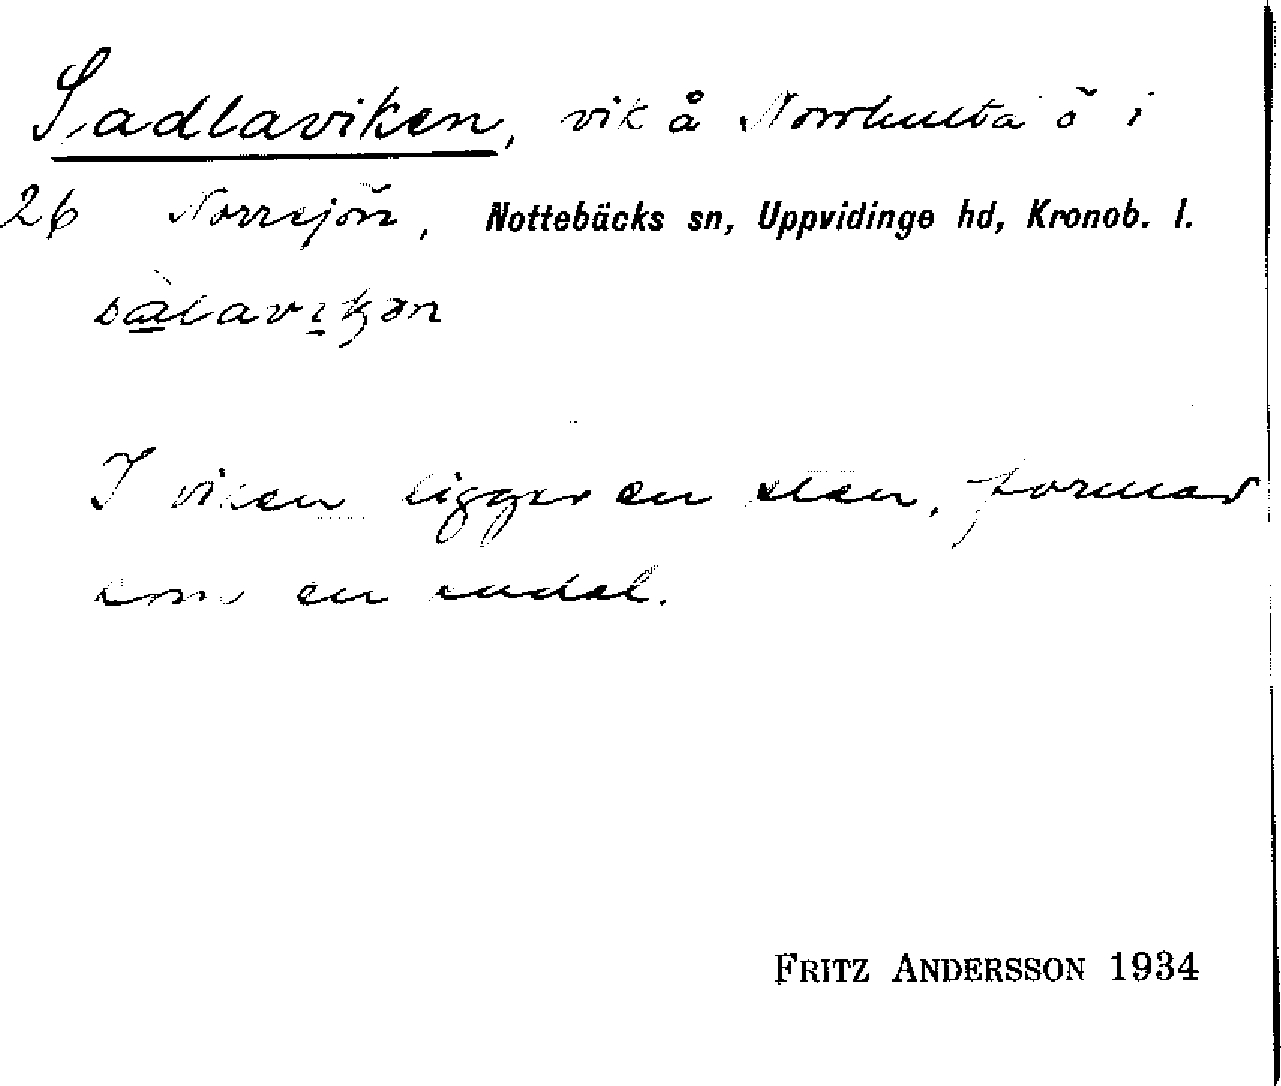 Sadlaviken, vik å Norrhulta ö i
26 Norrsjön, Nottebäcks sn, Uppvidinge hd, Kronob. l.
sàlavikən
I viken ligger en sten, formad
som en sadel.
FRITZ ANDERSSON 1934